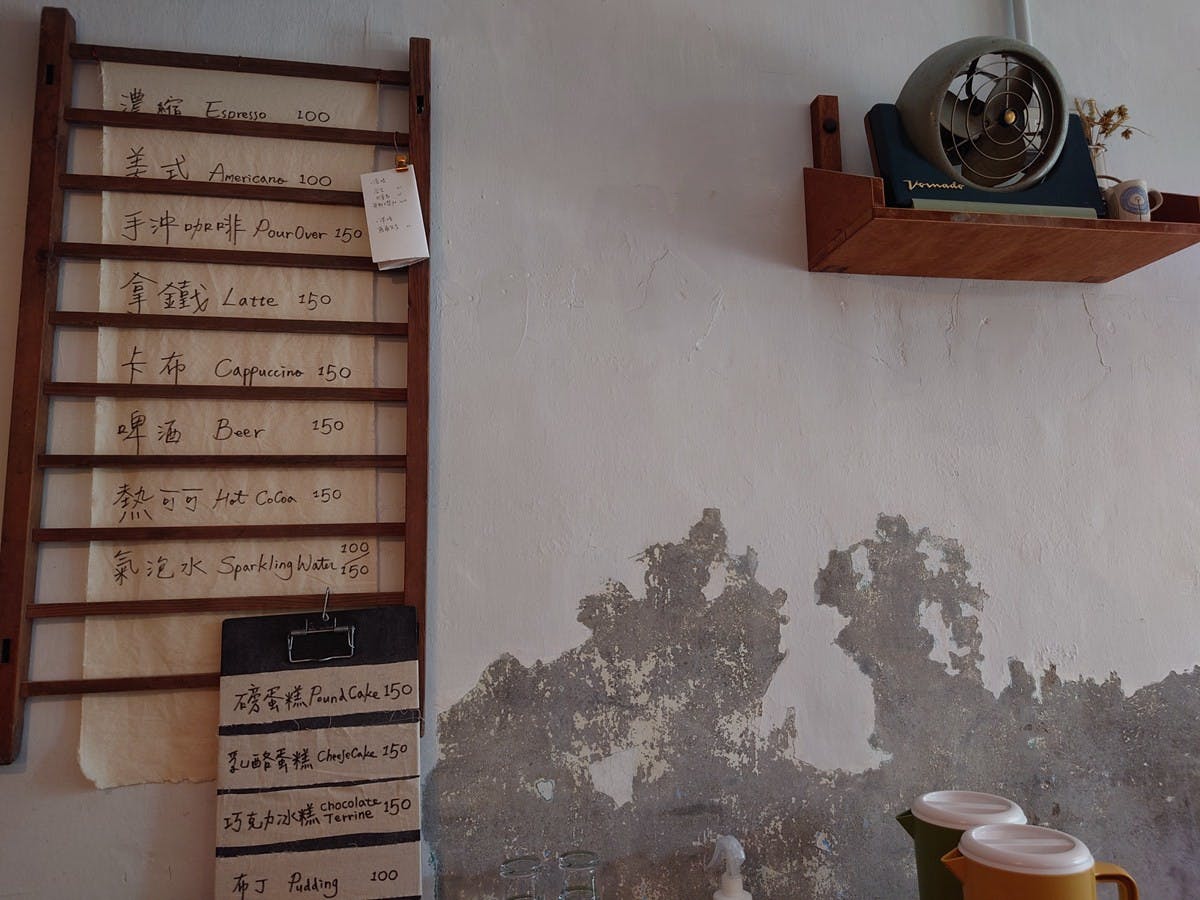 濃縮 Espresso 100
美式 Americano 100
手沖咖啡 PourOver 150
拿鐵 Latte 150
卡布 Cappuccino 150
啤酒 Beer 150
熱可可 Hot CoCoa 150
氣泡水 Sparkling Water 100/150
磅蛋糕 Pound Cake 150
乳酪蛋糕 CheeseCake 150
巧克力冰糕 Chocolate Terrine 150
布丁 Pudding 100
Vornado